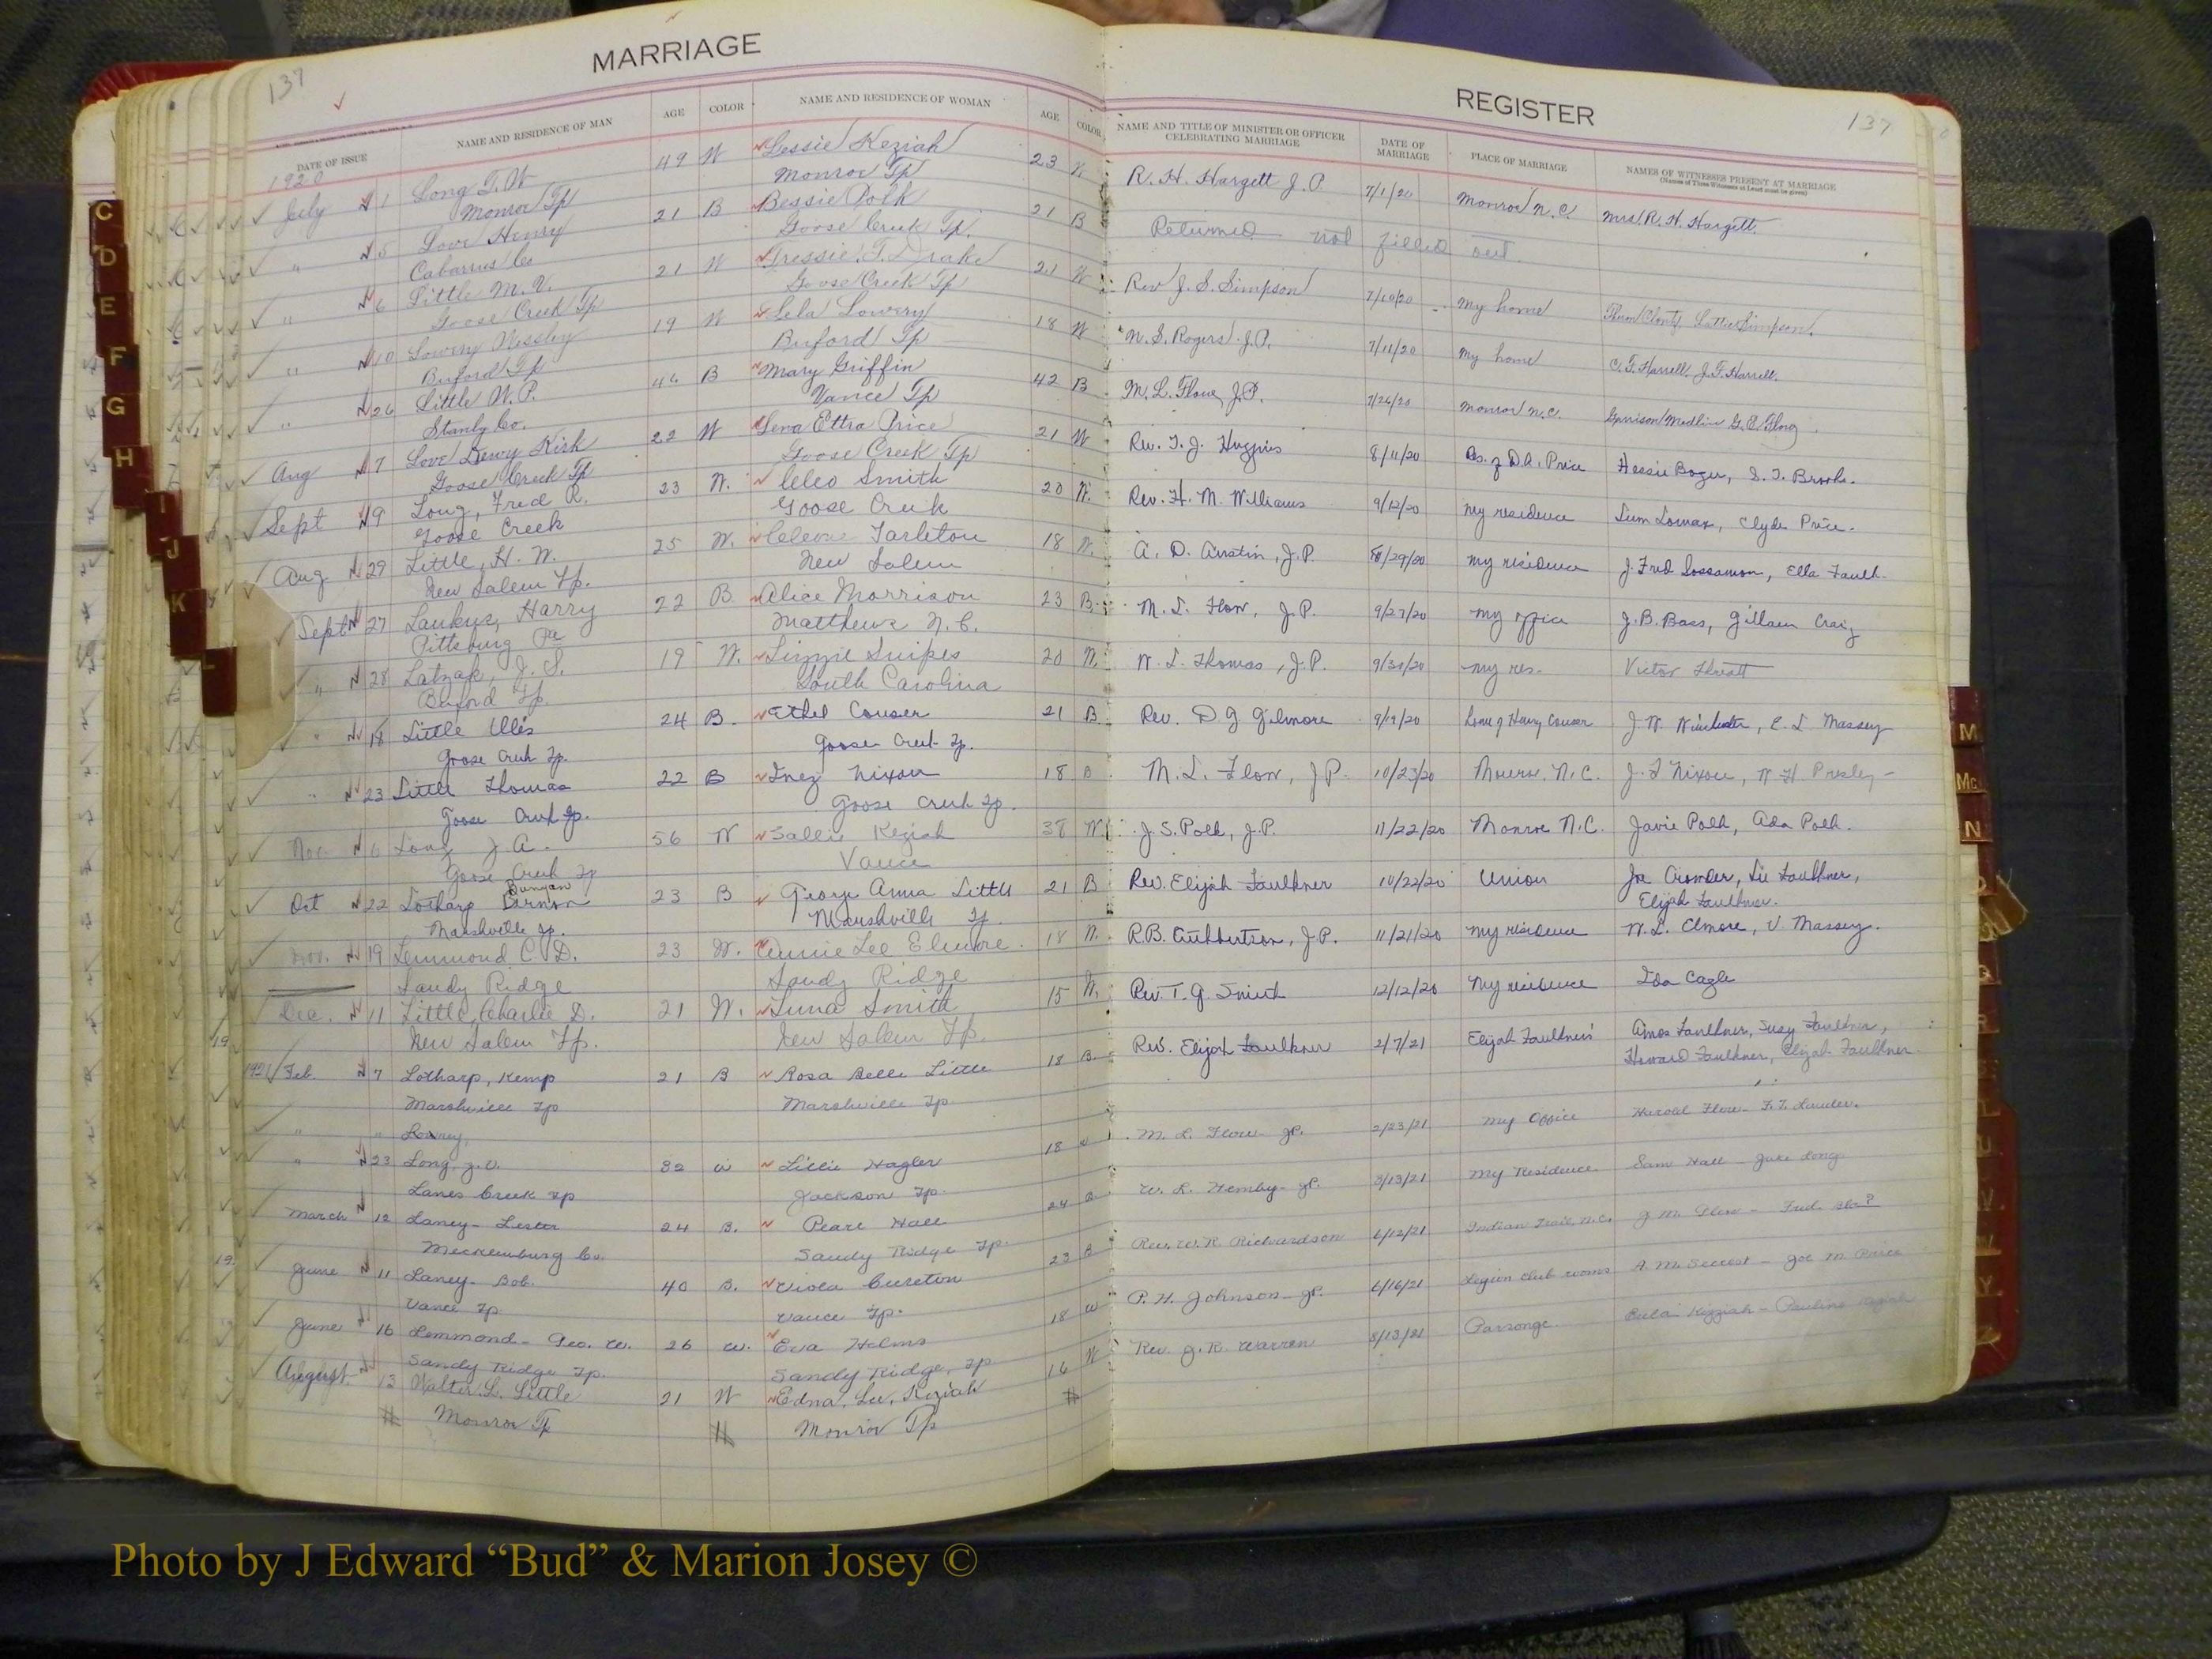 MARRIAGE
137
DATE OF ISSUE NAME AND RESIDENCE OF MAN AGE COLOR NAME AND RESIDENCE OF WOMAN AGE COLOR
1920
July 1 Long T. W 49 W Lessie Keziah 23 W
Monroe Tp Monroe Tp
" 5 Love Henry 21 B Bessie Polk 21 B
Cabarrus Co Goose Creek Tp.
" 6 Little M. V. 21 W Tressie T. Drake 21 W
Goose Creek Tp Goose Creek Tp
" 10 Lowery Wessley 19 W Lela Lowery 18 W
Buford Tp Buford Tp
" 26 Little W. P. 46 B Mary Griffin 42 B
Stanly Co. Vance Tp
Aug 7 Love Dewy Kirk 22 W Lena Ettra Price 21 W
Goose Creek Tp Goose Creek Tp
Sept 9 Long, Fred R. 23 W. Cleo Smith 20 W.
Goose Creek Goose Creek
Aug 29 Little, H. W. 25 W. Tarleton 18 W.
New Salem Tp. New Salem
Sept 27 Harry 22 B Alice Morrison 23 B.
Pittsburg Pa Matthews N.C.
" 28 J. S. 19 W. Lizzie Snipes 20 W.
Buford Tp. South Carolina
" 18 Little Ellis 24 B. Ethel Couser 21 B.
Goose Creek Tp. Goose Creek Tp.
" 23 Little Thomas 22 B Inez Nixon 18 B
Goose Creek Tp. Goose Creek Tp.
Nov 6 Long J. A. 56 W Sallie Keziah 38 W
Goose Creek Tp Vance
Bunyan
Oct 22 Lotharp 23 B George Anna Little 21 B
Marshville Tp. Marshville Tp.
Nov. 19 Lemmond C. D. 23 W. Annie Lee Elmore 18 W.
Sandy Ridge Sandy Ridge
Dec. 11 Little, Charlie D. 21 W. Luna Smith 15 W.
New Salem Tp. New Salem Tp.
1921 Feb. 7 Lotharp, Kemp 21 B Rosa Belle Little 18 B
Marshville Tp Marshville Tp.
" " Lowrey,
" 23 Long, J. V. 32 W Lillie Hagler 18 W
Lanes Creek Tp Jackson Tp.
March 12 Laney - Lester 24 B. Pearl Hall 24 B
Mecklenburg Co. Sandy Ridge Tp.
June 11 Laney - Bob. 40 B. Viola Cureton 23 B
Vance Tp. Vance Tp.
June 16 Lemmond - Geo. W. 26 W. Eva Helms 18 W
Sandy Ridge Tp. Sandy Ridge, Tp.
August 13 Walter L. Little 21 W Edna Lee Keziah 16 W
Monroe Tp Monroe Tp
REGISTER
137
NAME AND TITLE OF MINISTER OR OFFICER CELEBRATING MARRIAGE DATE OF MARRIAGE PLACE OF MARRIAGE NAMES OF WITNESSES PRESENT AT MARRIAGE
(Names of Three Witnesses at Least must be given)
R. H. Hargett J. P. 7/1/20 Monroe N.C. Mrs. R. H. Hargett
Returned not filled out.
Rev J. S. Simpson 7/10/20 My home Simpson.
N. S. Rogers J.P. 7/11/20 My home C. F. Harrell. J. F. Harrell.
M. L. Flow, J.P. 7/26/20 Monroe N.C.
Rev. T. J. Huggins 8/11/20 Res. of D.A. Price Hessie Boger, S. T. Brooks.
Rev. H. M. Williams 9/12/20 My residence Lum Lomax, Clyde Price.
A. D. Austin, J.P. 8/29/20 My residence J. Fred Sossamon, Ella Faulk.
M. L. Flow, J.P. 9/27/20 My office J. B. Bass, Craig
W. L. Thomas, J.P. 9/30/20 My res. Victor
Rev. D. G Gilmore 9/19/20 Home of Henry Couser J. W. Winchester, E. L. Massey
M. L. Flow, J.P. 10/23/20 Monroe, N.C. J. F Nixon, W. H. Presley -
J. S. Polk, J.P. 11/22/20 Monroe N.C. Javie Polk, Ada Polk.
Rev. Elijah Faulkner 10/22/20 Union Joe Crowder, Lee Faulkner,
Elijah Faulkner.
R.B. Cuthbertson, J.P. 11/21/20 My residence W. L. Elmore, V. Massey.
Rev. T. G. Smith 12/12/20 My residence Ida Cagle
Rev. Elijah Faulkner 2/7/21 Elijah Faulkners' Amos Faulkner, Susy Faulkner,
Howard Faulkner, Elijah Faulkner.
M. L. Flow - JP. 2/23/21 My Office Harold Flow -
W. L. Hemby - JP. 3/13/21 My Residence Sam Hall - Jake Long
Rev. W. R. Richardson 6/12/21 Indian Trail N.C.
P. H. Johnson - JP. 6/16/21 Legion Club rooms A. M. Secrest - Joe M. Price
Rev. J. R. Warren 8/13/21 Parsonge. Eula Kizziah - Pauline
C
D
E
F
G
H
I
J
K
L
M
Mc
N
Photo by J Edward “Bud” & Marion Josey ©